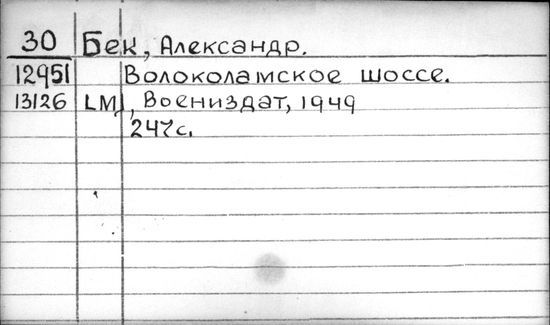 30 Бек, Александр.
12951 Волоколамское шоссе.
13126 [M], Воениздат, 1949
247с.